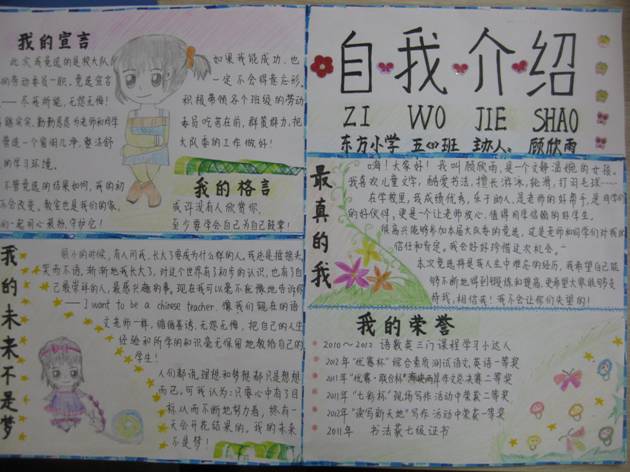 我的宣言
此次我竞选的是校大队
的劳动委员一职,竞选宣言
——不苛所能,无怨无悔!
踏实实,勤勤恳恳为老师和同学
营造一个窗明几净,整洁舒
的学习环境。
不管竞选的结果如何,我的初
不会改变,教室也是我们的家,
如果我能成功,也
一定不会得意忘形,
积极带领各个班级的劳动
委员吃苦在前,群策群力,把
大队委的工作做好!
我的格言
或许没有人欣赏你,
至少要学会自己为自己鼓掌!
自我介绍
ZI WO JIE SHAO
东方小学 五(4)班 主办人:顾欣雨
最真的我
嗨!大家好!我叫顾欣雨,是一个文静温婉的女孩。
我喜欢儿童文学,酷爱书法,擅长游泳,轮滑,打羽毛球……
在学校里,我成绩优秀,乐于助人,是老师的好帮手,是同学们
的好伙伴,更是一个让老师放心,值得同学信赖的好学生。
很高兴能够参加本届大队委的竞选,这是老师和同学们对我的
信任和肯定。我会好好珍惜这次机会。
本次竞选将是我人生中难忘的经历,我希望自己能
够不断地得到锻炼和提高,更希望大家能够支
持我,相信我!我不会让你们失望的!
我的未来不是梦
很小的时候,有人问我,长大了要成为什么样的人,我还是摇摇头
笑而不语,渐渐地我长大了,对这个世界有了初步的认识,也有了自
己最崇拜的人,最感兴趣的事,现在我可以毫不犹豫地告诉你
——I want to be a chinese teacher. 像我们现在的语
文老师一样,循循善诱,无怨无悔,把自己的人生
经验和所学的知识毫无保留地教给自己的
学生!
人们都说,理想和梦想都只是想想
而已,可我认为:只要心中有了目
标,从而不断地努力着,终有一
天会开花结果的,我的未来
不是梦!
我的荣誉
2010~2012 语数英三门课程学习小达人
2012年"优赛杯"综合素质测试语文,英语一等奖
2011年"优赛·联合杯"作文总决赛二等奖
2011年"七彩杯"现场写作活动中荣获一等奖
2012年"读写新天地"写作活动中荣获一等奖
2011年 书法荣七级证书